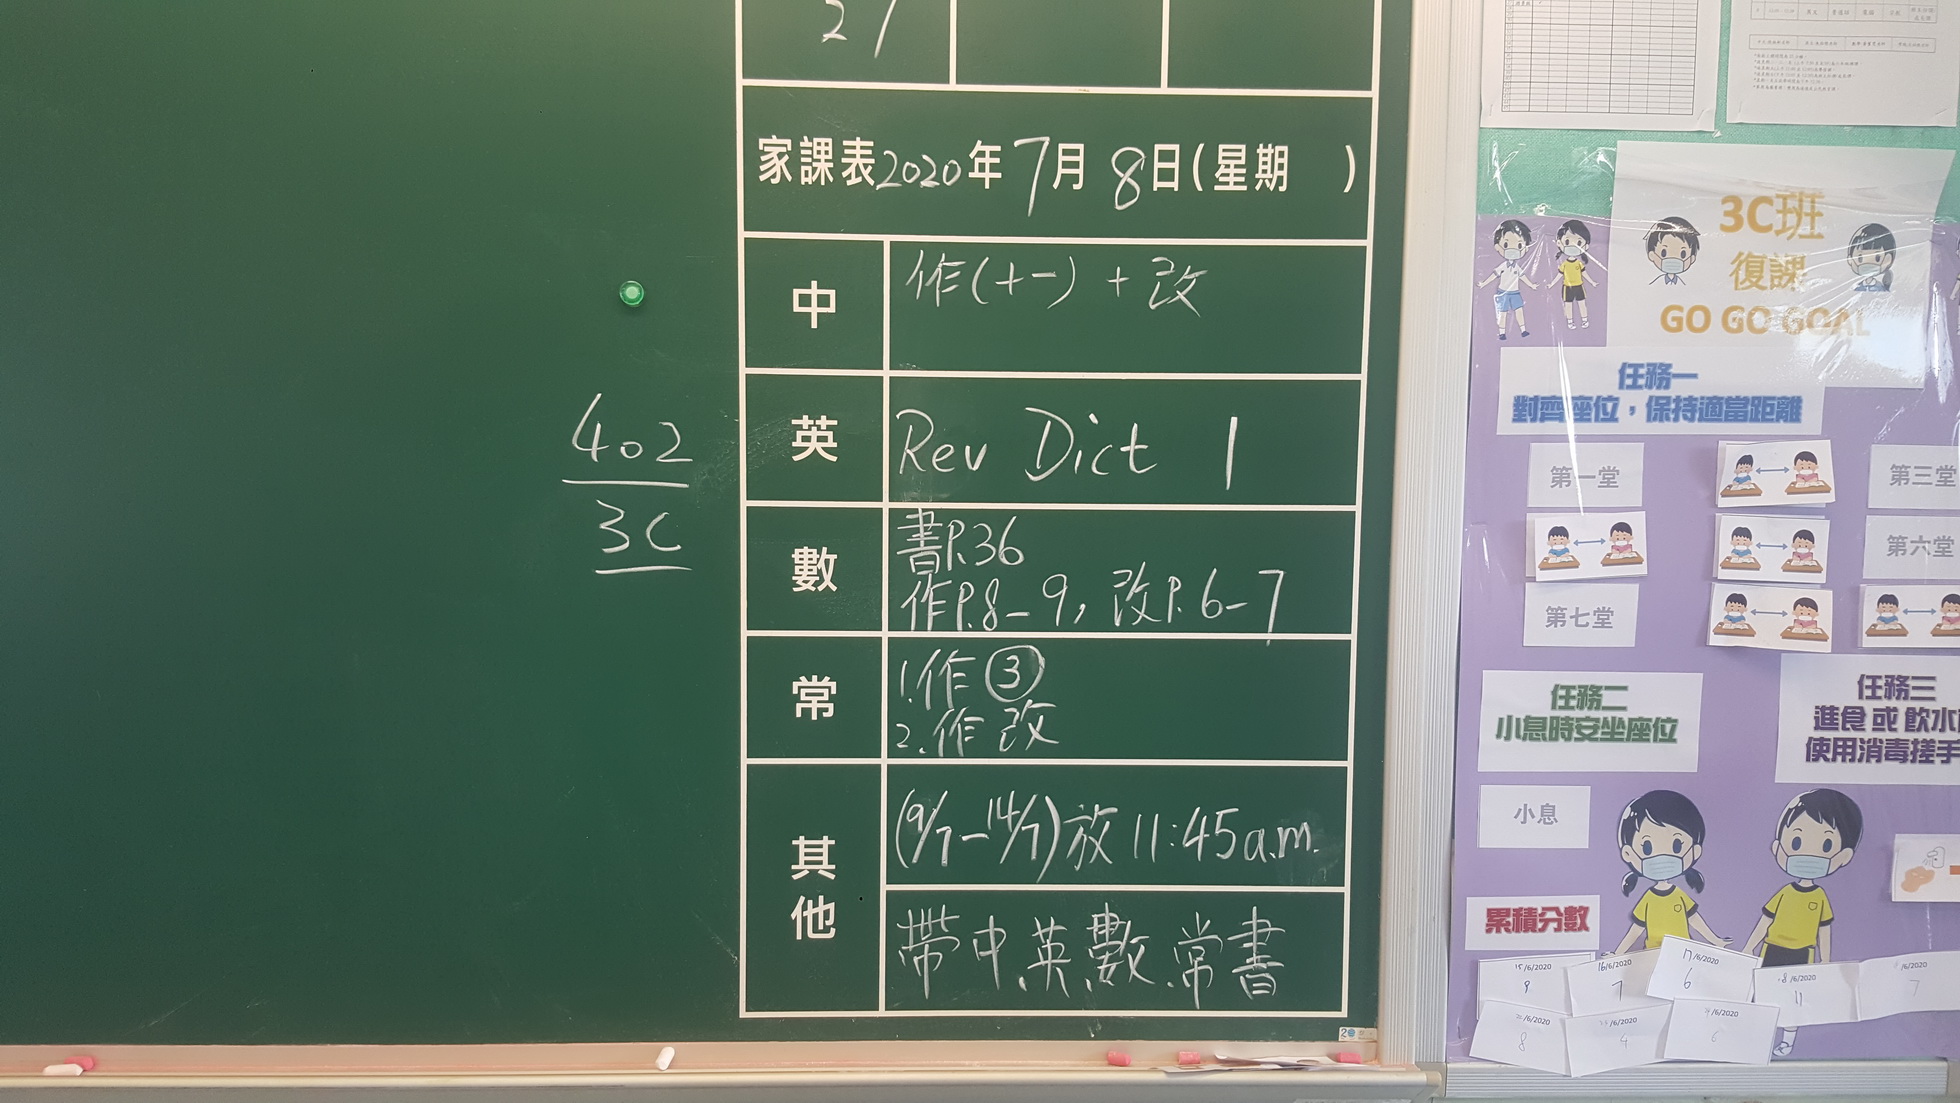 27
家課表2020年7月8日(星期 )
中
作(十一)+改
英
Rev Dict 1
數
書P.36
作P.8-9, 改P.6-7
常
1.作③
2.作改
其他
(9/7-14/7)放11:45a.m.
帶中、英、數、常書
402
3C
3C班
復課
GO GO GOAL
任務一
對齊座位，保持適當距離
第一堂
第三堂
第六堂
第七堂
任務二
小息時安坐座位
任務三
進食或飲水
使用消毒搓手
小息
累積分數
15/6/2020
9
16/6/2020
7
17/6/2020
6
18/6/2020
11
/6/2020
7
/6/2020
8
/6/2020
4
/6/2020
6